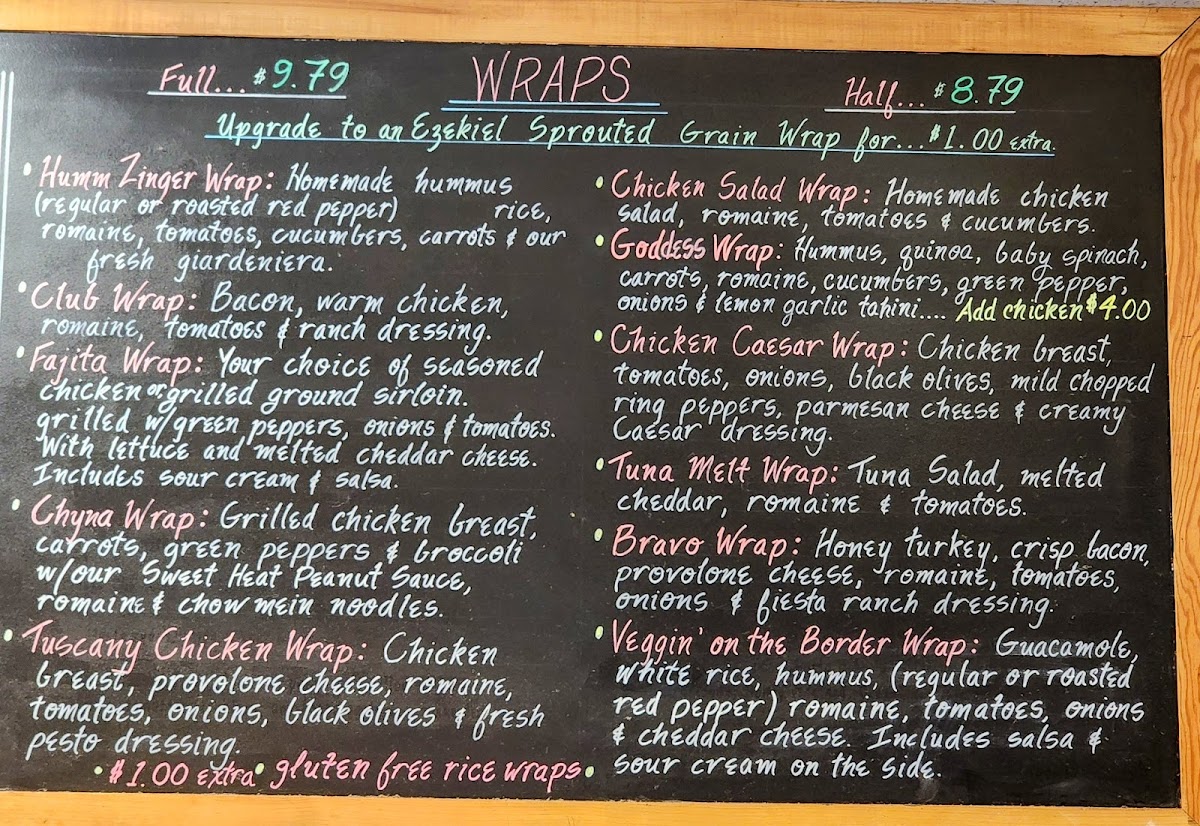 WRAPS
Full... $9.79
Half... $8.79
Upgrade to an Ezekiel Sprouted Grain Wrap for... $1.00 extra.
• Humm Zinger Wrap: Homemade hummus
(regular or roasted red pepper) rice,
romaine, tomatoes, cucumbers, carrots & our
fresh giardeniera.
• Club Wrap: Bacon, warm chicken,
romaine, tomatoes & ranch dressing.
• Fajita Wrap: Your choice of seasoned
chicken or grilled ground sirloin.
grilled w/green peppers, onions & tomatoes.
With lettuce and melted cheddar cheese.
Includes sour cream & salsa.
• Chyna Wrap: Grilled chicken breast,
carrots, green peppers & broccoli
w/our Sweet Heat Peanut Sauce,
romaine & chow mein noodles.
• Tuscany Chicken Wrap: Chicken
breast, provolone cheese, romaine,
tomatoes, onions, black olives & fresh
pesto dressing.
• $1.00 extra • gluten free rice wraps •
• Chicken Salad Wrap: Homemade chicken
salad, romaine, tomatoes & cucumbers.
• Goddess Wrap: Hummus, quinoa, baby spinach,
carrots, romaine, cucumbers, green pepper,
onions & lemon garlic tahini.... Add chicken $4.00
• Chicken Caesar Wrap: Chicken breast,
tomatoes, onions, black olives, mild chopped
ring peppers, parmesan cheese & creamy
Caesar dressing.
• Tuna Melt Wrap: Tuna Salad, melted
cheddar, romaine & tomatoes.
• Bravo Wrap: Honey turkey, crisp bacon,
provolone cheese, romaine, tomatoes,
onions & fiesta ranch dressing.
• Veggin' on the Border Wrap: Guacamole,
white rice, hummus, (regular or roasted
red pepper) romaine, tomatoes, onions
& cheddar cheese. Includes salsa &
sour cream on the side.